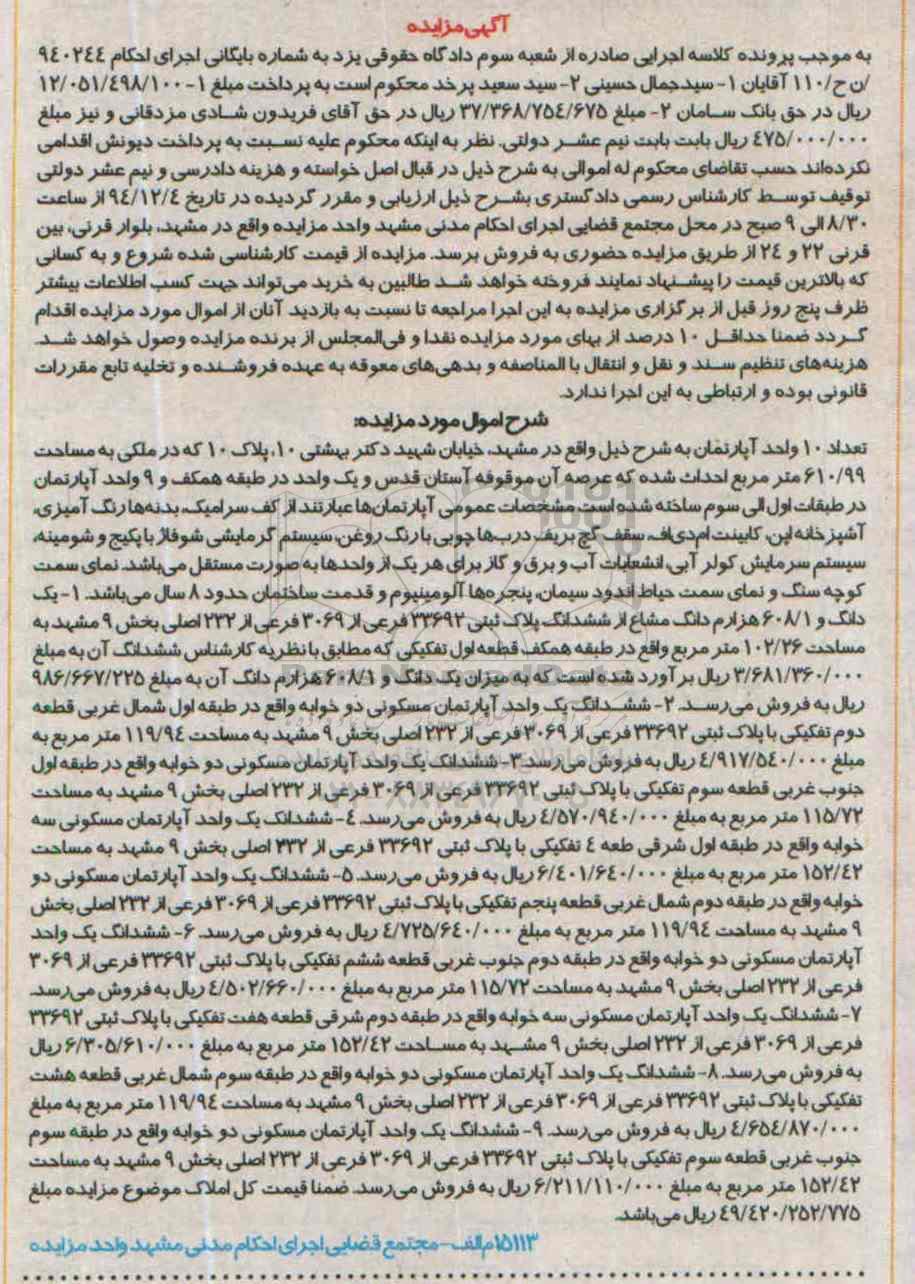 آگهی مزایده
به موجب پرونده کلاسه اجرایی صادره از شعبه سوم دادگاه حقوقی یزد به شماره بایگانی اجرای احکام ۹۴۰۲۴۴
/ن ح/۱۱۰ آقایان ۱- سیدجمال حسینی ۲- سید سعید پرخد محکوم است به پرداخت مبلغ ۱- ۱۲/۰۵۱/۴۹۸/۱۰۰
ریال در حق بانک سامان ۲- مبلغ ۳۷/۳۶۸/۷۵۴/۶۷۵ ریال در حق آقای فریدون شادی مزدقانی و نیز مبلغ
۴۷۵/۰۰۰/۰۰۰ ریال بابت بابت نیم عشر دولتی. نظر به اینکه محکوم علیه نسبت به پرداخت دیونش اقدامی
نکرده‌اند حسب تقاضای محکوم له اموالی به شرح ذیل در قبال اصل خواسته و هزینه دادرسی و نیم عشر دولتی
توقیف توسط کارشناس رسمی دادگستری بشرح ذیل ارزیابی و مقرر گردیده در تاریخ ۹۴/۱۲/۴ از ساعت
۸/۳۰ الی ۹ صبح در محل مجتمع قضایی اجرای احکام مدنی مشهد واحد مزایده واقع در مشهد، بلوار قرنی، بین
قرنی ۲۲ و ۲۴ از طریق مزایده حضوری به فروش برسد. مزایده از قیمت کارشناسی شده شروع و به کسانی
که بالاترین قیمت را پیشنهاد نمایند فروخته خواهد شد طالبین به خرید می‌تواند جهت کسب اطلاعات بیشتر
ظرف پنج روز قبل از برگزاری مزایده به این اجرا مراجعه تا نسبت به بازدید آنان از اموال مورد مزایده اقدام
گردد ضمنا حداقل ۱۰ درصد از بهای مورد مزایده نقدا و فی‌المجلس از برنده مزایده وصول خواهد شد.
هزینه‌های تنظیم سند و نقل و انتقال با المناصفه و بدهی‌های معوقه به عهده فروشنده و تخلیه تابع مقررات
قانونی بوده و ارتباطی به این اجرا ندارد.
شرح اموال مورد مزایده:
تعداد ۱۰ واحد آپارتمان به شرح ذیل واقع در مشهد، خیابان شهید دکتر بهشتی ۱۰، پلاک ۱۰ که در ملکی به مساحت
۶۱۰/۹۹ متر مربع احداث شده که عرصه آن موقوفه آستان قدس و یک واحد در طبقه همکف و ۹ واحد آپارتمان
در طبقات اول الی سوم ساخته شده است. مشخصات عمومی آپارتمان‌ها عبارتند از کف سرامیک، بدنه‌ها رنگ آمیزی،
آشپزخانه اپن، کابینت ام‌دی‌اف، سقف گچ بریف، درب‌ها چوبی با رنگ روغن، سیستم گرمایشی شوفاژ با پکیج و شومینه،
سیستم سرمایش کولر آبی، انشعابات آب و برق و گاز برای هر یک از واحدها به صورت مستقل می‌باشد. نمای سمت
کوچه سنگ و نمای سمت حیاط اندود سیمان، پنجره‌ها آلومینیوم و قدمت ساختمان حدود ۸ سال می‌باشد. ۱- یک
دانگ و ۶۰۸/۱ هزارم دانگ مشاع از ششدانگ پلاک ثبتی ۳۳۶۹۲ فرعی از ۳۰۶۹ فرعی از ۲۳۲ اصلی بخش ۹ مشهد به
مساحت ۱۰۲/۲۶ متر مربع واقع در طبقه همکف قطعه اول تفکیکی که مطابق با نظریه کارشناس ششدانگ آن به مبلغ
۳/۶۸۱/۳۶۰/۰۰۰ ریال برآورد شده است که به میزان یک دانگ و ۶۰۸/۱ هزارم دانگ آن به مبلغ ۹۸۶/۶۶۷/۲۲۵
ریال به فروش می‌رسد. ۲- ششدانگ یک واحد آپارتمان مسکونی دو خوابه واقع در طبقه اول شمال غربی قطعه
دوم تفکیکی با پلاک ثبتی ۳۳۶۹۲ فرعی از ۳۰۶۹ فرعی از ۲۳۲ اصلی بخش ۹ مشهد به مساحت ۱۱۹/۹۴ متر مربع به
مبلغ ۴/۹۱۷/۵۴۰/۰۰۰ ریال به فروش می‌رسد. ۳- ششدانگ یک واحد آپارتمان مسکونی دو خوابه واقع در طبقه اول
جنوب غربی قطعه سوم تفکیکی با پلاک ثبتی ۳۳۶۹۲ فرعی از ۳۰۶۹ فرعی از ۲۳۲ اصلی بخش ۹ مشهد به مساحت
۱۱۵/۷۲ متر مربع به مبلغ ۴/۵۷۰/۹۴۰/۰۰۰ ریال به فروش می‌رسد. ۴- ششدانگ یک واحد آپارتمان مسکونی سه
خوابه واقع در طبقه اول شرقی طعه ۴ تفکیکی با پلاک ثبتی ۳۳۶۹۲ فرعی از ۲۳۲ اصلی بخش ۹ مشهد به مساحت
۱۵۲/۴۲ متر مربع به مبلغ ۶/۴۰۱/۶۴۰/۰۰۰ ریال به فروش می‌رسد. ۵- ششدانگ یک واحد آپارتمان مسکونی دو
خوابه واقع در طبقه دوم شمال غربی قطعه پنجم تفکیکی با پلاک ثبتی ۳۳۶۹۲ فرعی از ۳۰۶۹ فرعی از ۲۳۲ اصلی بخش
۹ مشهد به مساحت ۱۱۹/۹۴ متر مربع به مبلغ ۴/۷۲۵/۶۴۰/۰۰۰ ریال به فروش می‌رسد. ۶- ششدانگ یک واحد
آپارتمان مسکونی دو خوابه واقع در طبقه دوم جنوب غربی قطعه ششم تفکیکی با پلاک ثبتی ۳۳۶۹۲ فرعی از ۳۰۶۹
فرعی از ۲۳۲ اصلی بخش ۹ مشهد به مساحت ۱۱۵/۷۲ متر مربع به مبلغ ۴/۵۰۲/۶۶۰/۰۰۰ ریال به فروش می‌رسد.
۷- ششدانگ یک واحد آپارتمان مسکونی سه خوابه واقع در طبقه دوم شرقی قطعه هفت تفکیکی با پلاک ثبتی ۳۳۶۹۲
فرعی از ۳۰۶۹ فرعی از ۲۳۲ اصلی بخش ۹ مشهد به مساحت ۱۵۲/۴۲ متر مربع به مبلغ ۶/۳۰۵/۶۱۰/۰۰۰ ریال
به فروش می‌رسد. ۸- ششدانگ یک واحد آپارتمان مسکونی دو خوابه واقع در طبقه سوم شمال غربی قطعه هشت
تفکیکی با پلاک ثبتی ۳۳۶۹۲ فرعی از ۳۰۶۹ فرعی از ۲۳۲ اصلی بخش ۹ مشهد به مساحت ۱۱۹/۹۴ متر مربع به مبلغ
۴/۶۵۴/۸۷۰/۰۰۰ ریال به فروش می‌رسد. ۹- ششدانگ یک واحد آپارتمان مسکونی دو خوابه واقع در طبقه سوم
جنوب غربی قطعه سوم تفکیکی با پلاک ثبتی ۳۳۶۹۲ فرعی از ۳۰۶۹ فرعی از ۲۳۲ اصلی بخش ۹ مشهد به مساحت
۱۵۲/۴۲ متر مربع به مبلغ ۶/۲۱۱/۱۱۰/۰۰۰ ریال به فروش می‌رسد. ضمنا قیمت کل املاک موضوع مزایده مبلغ
۴۹/۴۲۰/۲۵۲/۷۷۵ ریال می‌باشد.
۱۵۱۱۳/م الف - مجتمع قضایی اجرای احکام مدنی مشهد واحد مزایده